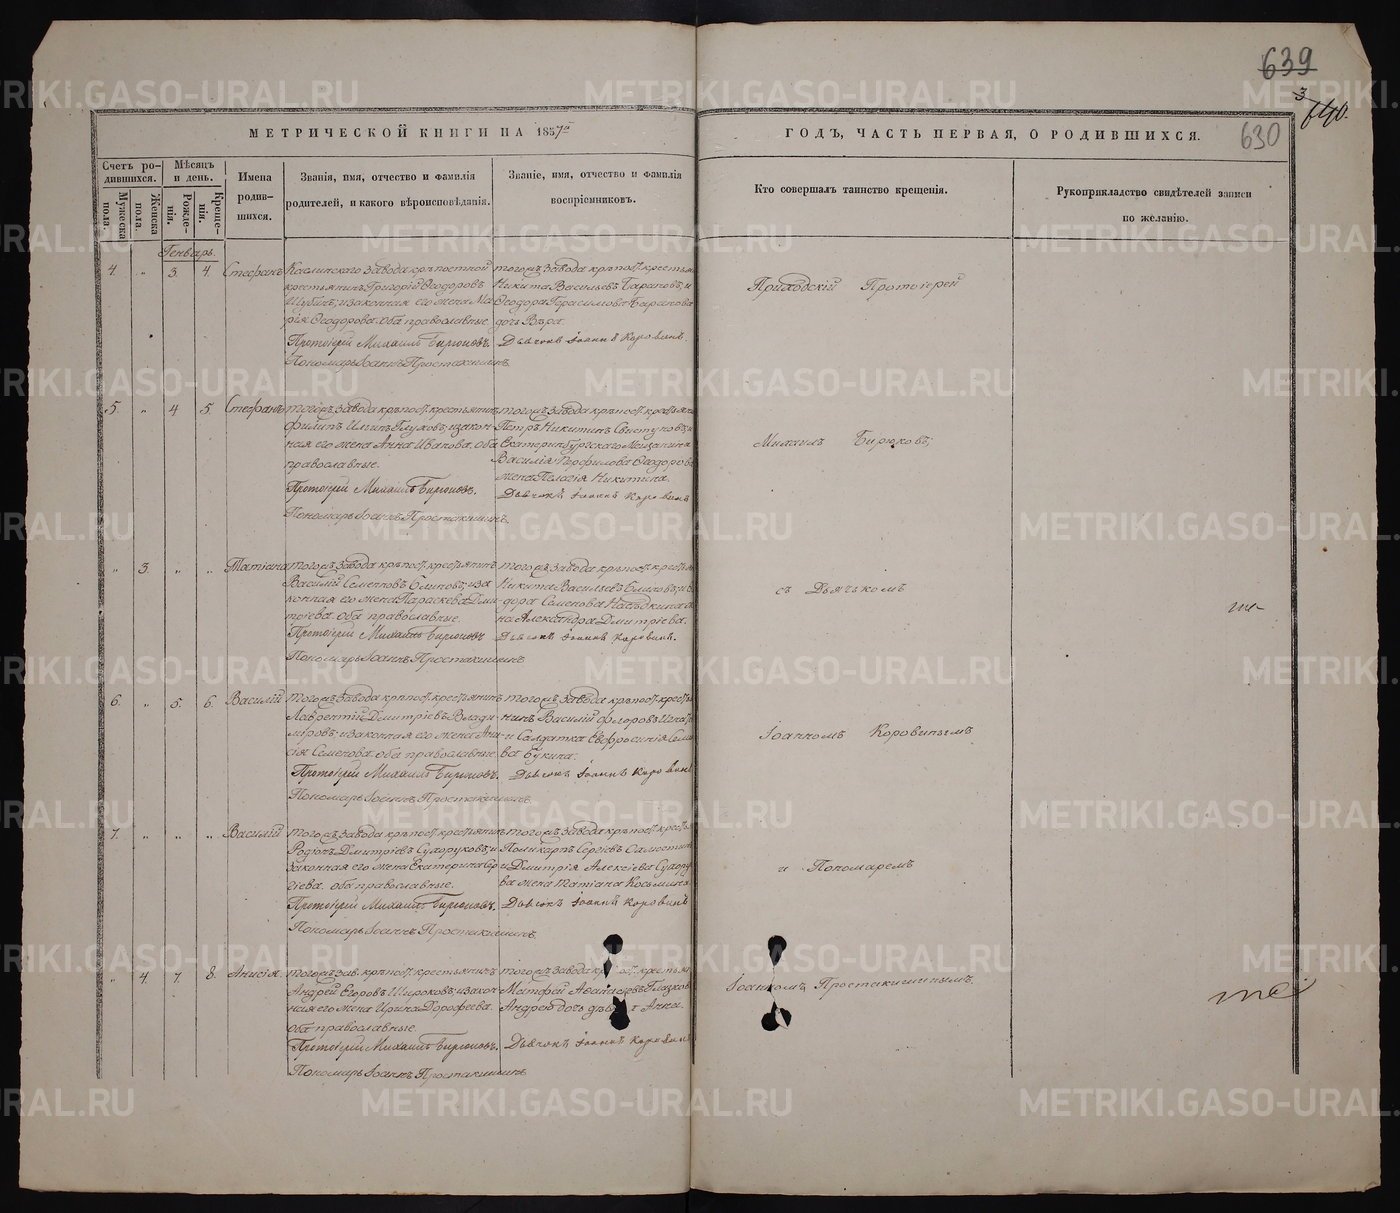 639
3
640.
630
МЕТРИЧЕСКОЙ КНИГИ НА 1857й
ГОДЪ, ЧАСТЬ ПЕРВАЯ, О РОДИВШИХСЯ.
Счетъ родившихся.
Мужеска пола.
Женска пола.
Мѣсяцъ и день.
Рожденія.
Крещенія.
Имена родившихся.
Званія, имя, отчество и фамилія
родителей, и какого вѣроисповѣданія.
Званіе, имя, отчество и фамилія
воспріемниковъ.
Кто совершалъ таинство крещенія.
Рукоприкладство свидѣтелей записи
по желанію.
Генварь.
4. „ 3. 4. Стефанъ
Каслинскаго завода крѣпостной
крестьянинъ Григорій Ѳеодоровъ
Шубинъ, и законная его жена Ма
рія Ѳеодорова. оба православные.
Протоіерей Михаилъ Бирюковъ.
Пономарь Іоаннъ Простакишинъ
тогожъ завода крѣпост. крестьян
Никита Васильевъ Барановъ, и
Ѳеодора Герасимова Баранова
дочь Вѣра.
Дьячокъ Іоаннъ Коровинъ.
Приходскій Протоіерей
5. „ 4 5. Стефанъ
тогожъ завода крѣпост. крестьянинъ
Филипъ Ильинъ Глуховъ, и закон
ная его жена Анна Иванова. оба
православные.
Протоіерей Михаилъ Бирюковъ.
Пономарь Іоаннъ Простакишинъ.
тогожъ завода крѣпост. крестьян
Петръ Никитинъ Свистуновъ, и
Екатеринбургскаго Мѣщанина
Василія Порфилова Ѳеодоров
жена Пелагія Никитина.
Дьячокъ Іоаннъ Коровинъ
Михаилъ Бирюковъ,
„ 3. „ „ Татіана
тогожъ завода крѣпост. крестьянинъ
Василій Семеновъ Блиновъ, и за
конная его жена Параскева Дми
тріева. оба православные.
Протоіерей Михаилъ Бирюковъ
Пономарь Іоаннъ Простакишинъ
тогожъ завода крѣпост. крестьян
Никита Васильевъ Блиновъ, и Ѳе
дора Семенова Насѣдкина
на Александра Дмитріева.
Дьячокъ Іоаннъ Коровинъ.
съ Дьячкомъ
6. „ 5. 6. Василій
тогожъ завода крѣпост. крестьянинъ
Лаврентій Дмитріевъ Влади
міровъ, и законная его жена Ани
сія Семенова. оба православные.
Протоіерей Михаилъ Бирюковъ.
Пономарь Іоаннъ Простакишинъ.
тогожъ завода крѣпост. кресть
нинъ Василій Флоровъ Игнат
и Солдатка Евфросинія Семе
ва Букина.
Дьячокъ Іоаннъ Коровинъ
Іоанномъ Коровинымъ
7. „ „ „ Василій
тогожъ завода крѣпост. крестьянинъ
Родіонъ Дмитріевъ Сухоруковъ, и
законная его жена Екатерина Сер
гіева. оба православные.
Протоіерей Михаилъ Бирюковъ.
Пономарь Іоаннъ Простакишинъ.
тогожъ завода крѣпост. крест.
Поликарпъ Сергіевъ Самостин
и Дмитрія Алексіева Сухору
ва жена Татіана Косьмина
Дьячокъ Іоаннъ Коровинъ
и Пономаремъ
„ 4. 7. 8. Анисія
тогожъ зав. крѣпост. крестьянинъ
Андрей Егоровъ Широковъ, и закон
ная его жена Ирина Дорофеева.
оба православные.
Протоіерей Михаилъ Бирюковъ.
Пономарь Іоаннъ Простакишинъ
тогожъ завода крѣпост. крестьян
Матфей Аѳанасьевъ Глазков
Дьячокъ Іоаннъ Коровинъ
Іоанномъ Простакишинымъ.
METRIKI.GASO-URAL.RU